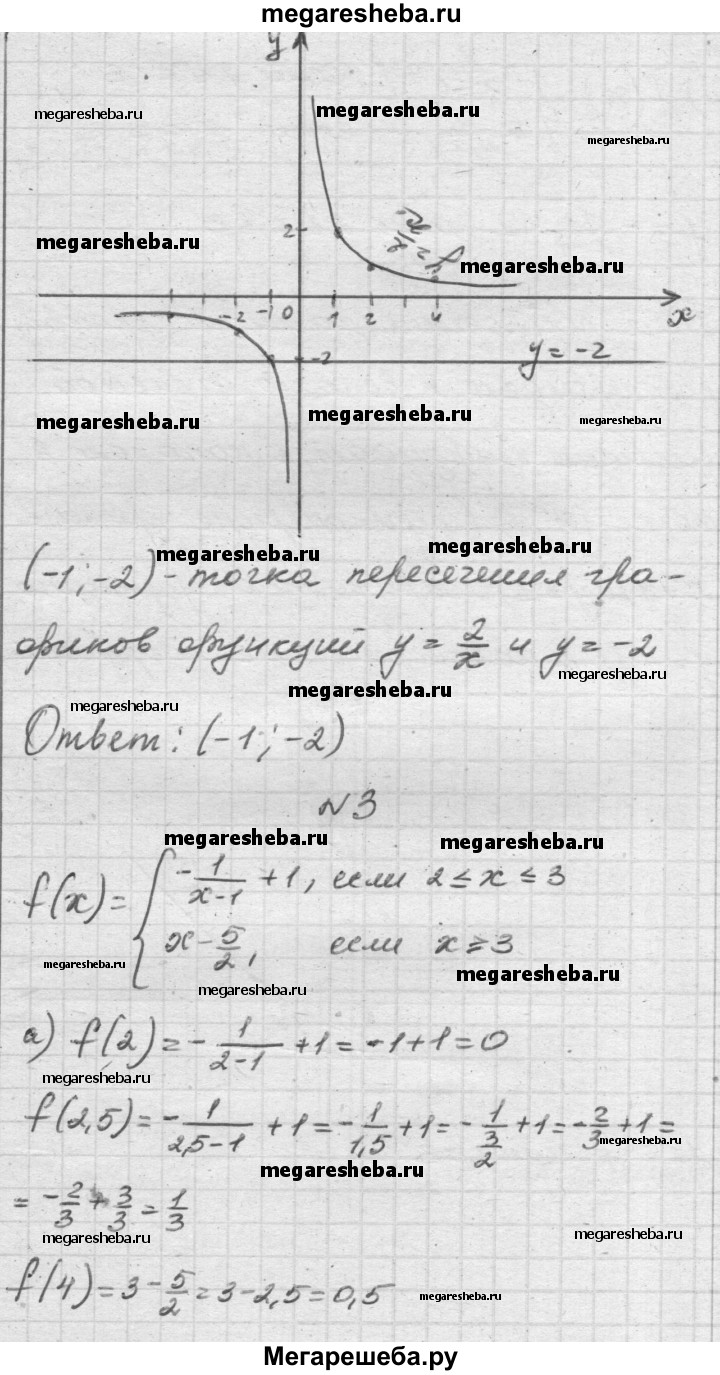 megaresheba.ru
y
megaresheba.ru
megaresheba.ru
megaresheba.ru
2
megaresheba.ru
megaresheba.ru
-2 -1 0 1 2 4 x
-2
y = -2
megaresheba.ru
megaresheba.ru
megaresheba.ru
megaresheba.ru
megaresheba.ru
(-1; -2) - точка пересечения гра-
фиков функций y = 2/x и y = -2
megaresheba.ru
megaresheba.ru
megaresheba.ru
Ответ: (-1; -2)
N3
megaresheba.ru
megaresheba.ru
f(x) = { -1/(x-1) + 1, если 2 ≤ x ≤ 3
x - 5/2, если x ≥ 3
megaresheba.ru
megaresheba.ru
megaresheba.ru
а) f(2) = -1/(2-1) + 1 = -1 + 1 = 0
megaresheba.ru
f(2,5) = -1/(2,5-1) + 1 = -1/1,5 + 1 = -1/(3/2) + 1 = -2/3 + 1 =
megaresheba.ru
megaresheba.ru
= -2/3 + 3/3 = 1/3
megaresheba.ru
megaresheba.ru
f(4) = 3 - 5/2 = 3 - 2,5 = 0,5
megaresheba.ru
Мегарешеба.ру